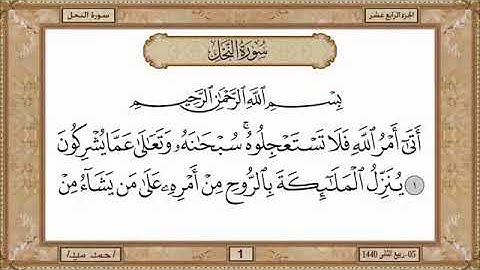 الجزء الرابع عشر
سورة النحل
سُورَةُ النَّحْلِ
بِسْمِ اللَّهِ الرَّحْمَٰنِ الرَّحِيمِ
أَتَىٰٓ أَمْرُ اللَّهِ فَلَا تَسْتَعْجِلُوهُ ۚ سُبْحَانَهُۥ وَتَعَالَىٰ عَمَّا يُشْرِكُونَ
١ يُنَزِّلُ الْمَلَٰٓئِكَةَ بِالرُّوحِ مِنْ أَمْرِهِۦ عَلَىٰ مَن يَشَآءُ مِنْ
05- ربيع الثاني 1440
1